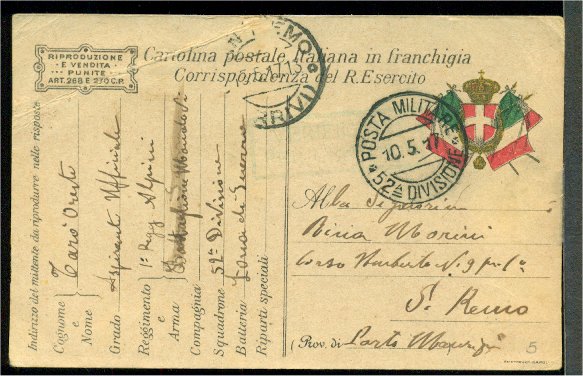 RIPRODUZIONE
E VENDITA
PUNITE
ART. 268 E 270 C.P.
Cartolina postale Italiana in franchigia
Corrispondenza del R. Esercito
REMO
ARRIVI
POSTA MILITARE
10.5.1
52ª DIVISIONE
Alla Signorina
Bina Morini
Corso Umberto N. 9 p
S. Remo
(Prov. di Porto Maurizio
5
Indirizzo del mittente da riprodurre nelle risposte
Cognome e Nome Tarò Oreste
Grado Aspirante Ufficiale
Reggimento e Arma 1º Regg Alpini
Compagnia Battaglione
Squadrone 52ª Divisione
Batteria Zona di Guerra
Riparti speciali